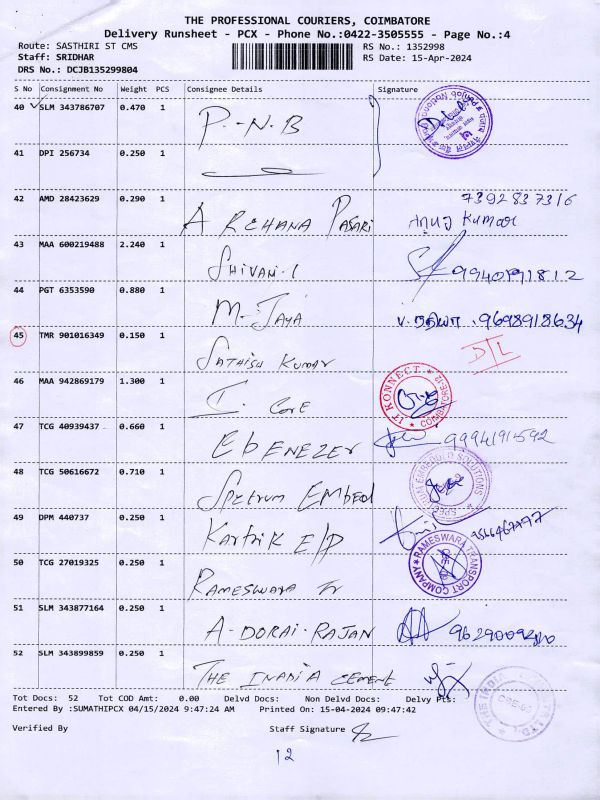 THE PROFESSIONAL COURIERS, COIMBATORE
Delivery Runsheet - PCX - Phone No.:0422-3505555 - Page No.:4
Route: SASTHIRI ST CMS
RS No.: 1352998
Staff: SRIDHAR
RS Date: 15-Apr-2024
DRS No.: DCJB135299804
S No Consignment No Weight PCS Consignee Details Signature
40 SLM 343786707 0.470 1 P.-N.B
41 DPI 256734 0.250 1
42 AMD 28423629 0.290 1 ARCHANA PASARI 7392837316
Anuj Kumar
43 MAA 600219488 2.240 1 SHIVANI.C 9940191812
44 PGT 6353590 0.880 1 M. JAYA V. 9698918634
45 TMR 901016349 0.150 1 SATHISH KUMAR D/L
46 MAA 942869179 1.300 1 I. CORE IT KONNECT COIMBATORE-12
47 TCG 40939437 0.660 1 EBENEZER 9994191592
48 TCG 50616672 0.710 1 SPECTRUM EMBED EMBEDDED SOLUTIONS
49 DPM 440737 0.250 1 KARTHIK E/P
50 TCG 27019325 0.250 1 RAMESWARA Tr RAMESWARA TRANSPORT COMPANY
51 SLM 343877164 0.250 1 A-DORAI-RAJAN
52 SLM 343899859 0.250 1 THE INDIA CEMENT
Tot Docs: 52 Tot COD Amt: 0.00 Delvd Docs: Non Delvd Docs: Delvy Pts:
Entered By :SUMATHIPCX 04/15/2024 9:47:24 AM Printed On: 15-04-2024 09:47:42
Verified By Staff Signature
12